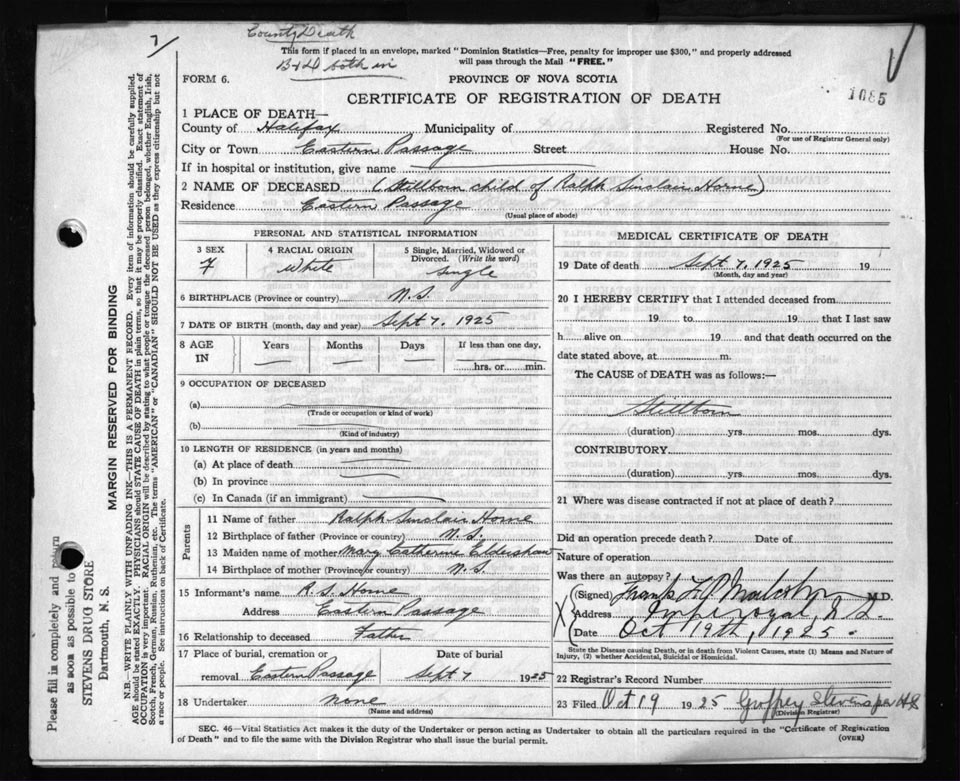 County Death
7/
This form if placed in an envelope, marked "Dominion Statistics—Free, penalty for improper use $300," and properly addressed
will pass through the Mail "FREE."
B & D both in
FORM 6.
PROVINCE OF NOVA SCOTIA
1085
CERTIFICATE OF REGISTRATION OF DEATH
1 PLACE OF DEATH—
County of Halifax Municipality of Registered No.
(For use of Registrar General only)
City or Town Eastern Passage Street House No.
If in hospital or institution, give name
2 NAME OF DECEASED (Stillborn child of Ralph Sinclair Horne)
Residence Eastern Passage
(Usual place of abode)
PERSONAL AND STATISTICAL INFORMATION
3 SEX
F
4 RACIAL ORIGIN
White
5 Single, Married, Widowed or
Divorced. (Write the word)
single
6 BIRTHPLACE (Province or country) N.S.
7 DATE OF BIRTH (month, day and year) Sept 7. 1925
8 AGE
IN
Years
Months
Days
If less than one day,
hrs. or min.
9 OCCUPATION OF DECEASED
(a)
(Trade or occupation or kind of work)
(b)
(Kind of industry)
10 LENGTH OF RESIDENCE (in years and months)
(a) At place of death
(b) In province
(c) In Canada (if an immigrant)
Parents
11 Name of father Ralph Sinclair Horne
12 Birthplace of father (Province or country) N.S.
13 Maiden name of mother Mary Catherine Eldershaw
14 Birthplace of mother (Province or country) N.S.
15 Informant's name R. S. Horne
Address Eastern Passage
16 Relationship to deceased Father
17 Place of burial, cremation or
removal Eastern Passage
Date of burial
Sept 7 1925
18 Undertaker none
(Name and address)
MEDICAL CERTIFICATE OF DEATH
19 Date of death Sept 7, 1925 19
(Month, day and year)
20 I HEREBY CERTIFY that I attended deceased from
19 to 19 that I last saw
h alive on 19 and that death occurred on the
date stated above, at m.
The CAUSE of DEATH was as follows:—
Stillborn
(duration) yrs. mos. dys.
CONTRIBUTORY
(duration) yrs. mos. dys.
21 Where was disease contracted if not at place of death?
Did an operation precede death? Date of
Nature of operation
Was there an autopsy?
(Signed) Frank M.D.
X
Address Imperoyal, N.S.
Date Oct 19th, 1925.
State the Disease causing Death, or in death from Violent Causes, state (1) Means and Nature of
Injury, (2) whether Accidental, Suicidal or Homicidal.
22 Registrar's Record Number
23 Filed Oct 19 1925 Godfrey Stevens per
(Division Registrar)
SEC. 46—Vital Statistics Act makes it the duty of the Undertaker or person acting as Undertaker to obtain all the particulars required in the "Certificate of Registration
of Death" and to file the same with the Division Registrar who shall issue the burial permit.
(OVER)
MARGIN RESERVED FOR BINDING
N.B.—WRITE PLAINLY WITH UNFADING INK—THIS IS A PERMANENT RECORD. Every item of information should be carefully supplied.
AGE should be stated EXACTLY. PHYSICIANS should STATE CAUSE OF DEATH in plain terms, so that it may be properly classified. Exact statement of
OCCUPATION is very important. RACIAL ORIGIN will be described by stating to what people or tongue the deceased person belonged, whether English, Irish,
Scotch, French, German, Russian, Ruthenian, etc. The terms "AMERICAN" or "CANADIAN" SHOULD NOT BE USED as they express citizenship but not
a race or people. See instructions on back of Certificate.
Please fill in completely and return
as soon as possible to
STEVENS DRUG STORE
Dartmouth, N. S.